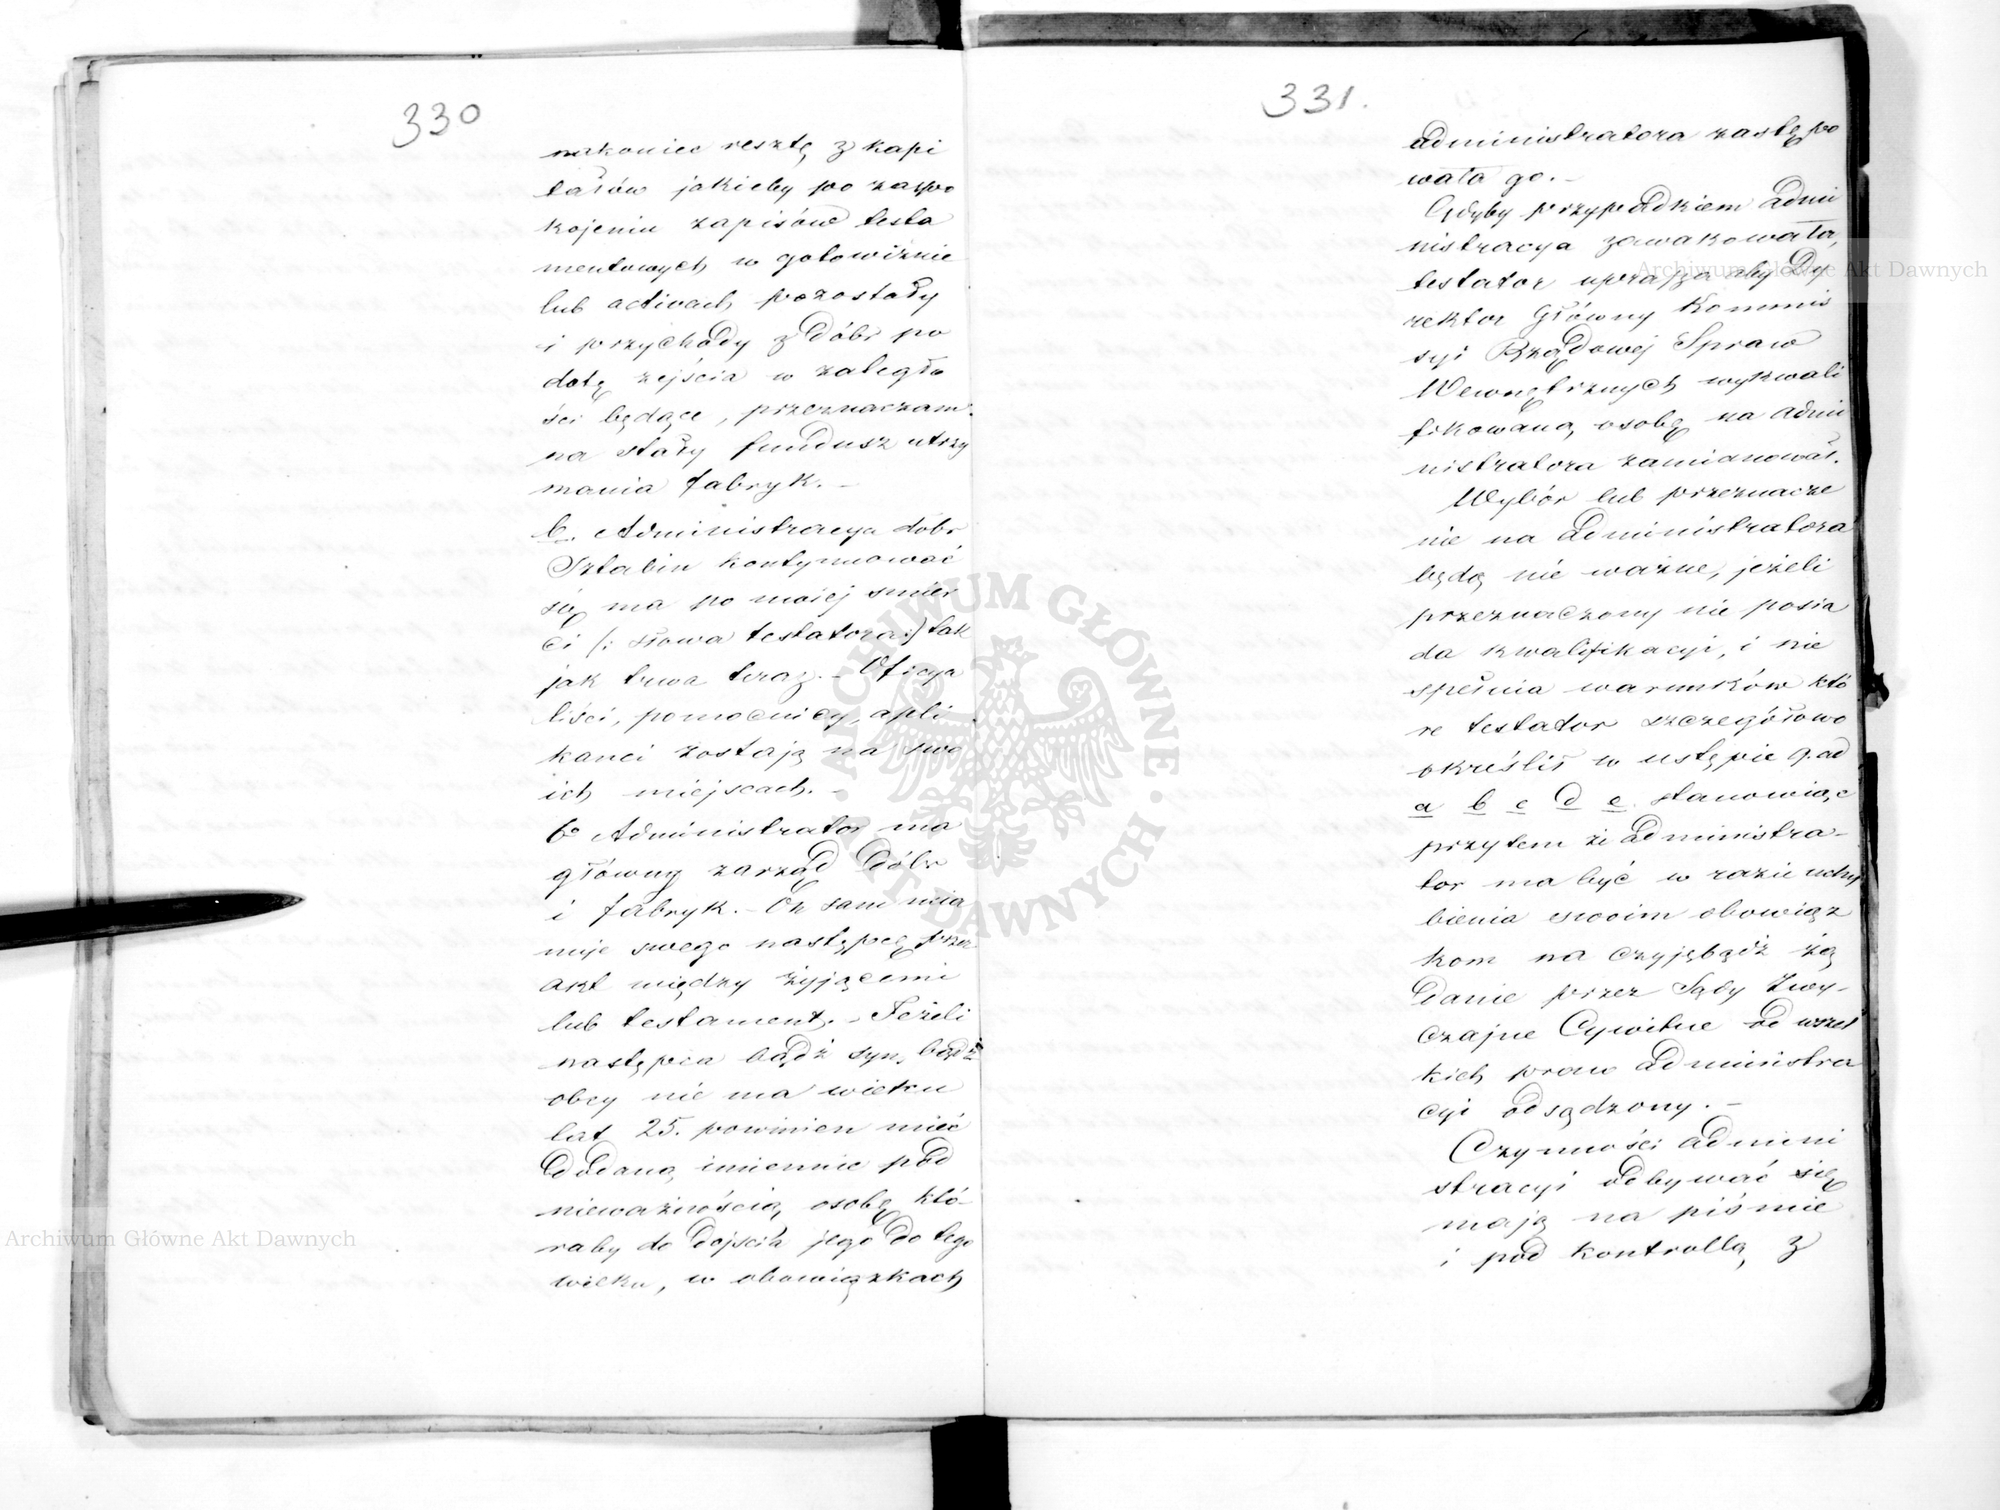 330
nakoniec resztę z kapi
tałów jakieby po zaspo
kojeniu zapisów testa
mentowych w gotowiźnie
lub activach pozostały
i przychody z dóbr po
datę zejścia w zaległo
ści będące, przeznaczam
na stały fundusz utrzy
mania fabryk. –
b. Administracya dóbr
Sztabin kontynuować
się ma po mojej śmier
ci (: słowa testatora :) tak
jak trwa teraz. – Oficya
liści, pomocnicy, apli
kanci zostają na swo
ich miejscach. –
6o Administrator ma
główny zarząd dóbr
i fabryk. – On sam mia
nuje swego następcę przez
akt między żyjącemi
lub testament. – Jeżeli
następca bądź syn, bądź
obcy nie ma wieku
lat 25. powinien mieć
dodaną imiennie pod
nieważnością osobę któ-
raby do dojścia jego do tego
wieku, w obowiązkach
331.
administratora zastępo
wała go. –
Gdyby przypadkiem admi
nistracya zawakowała,
testator uprasza aby Dy
rektor Główny Kommis
syi Rządowej Spraw
Wewnętrznych wykwali
fikowaną osobę na admi
nistratora zamianował.
Wybór lub przeznacze
nie na administratora
będą nie ważne, jeżeli
przeznaczony nie posia
da kwalifikacyi, i nie
spełnia warunków któ
re testator szczegółowo
określił w ustępie 9. ad
a b c d e. stanowiąc
przytem że administra-
tor ma być w razie uchy
bienia swoim obowiąz
kom na czyjębądź żą
danie przez Sądy Zwy-
czajne Cywilne od wszel
kich praw administra
cyi odsądzony. –
Czynności admini
stracyi odbywać się
mają na piśmie
i pod kontrollą z
Archiwum Główne Akt Dawnych
Archiwum Główne Akt Dawnych
ARCHIWUM GŁÓWNE AKT DAWNYCH